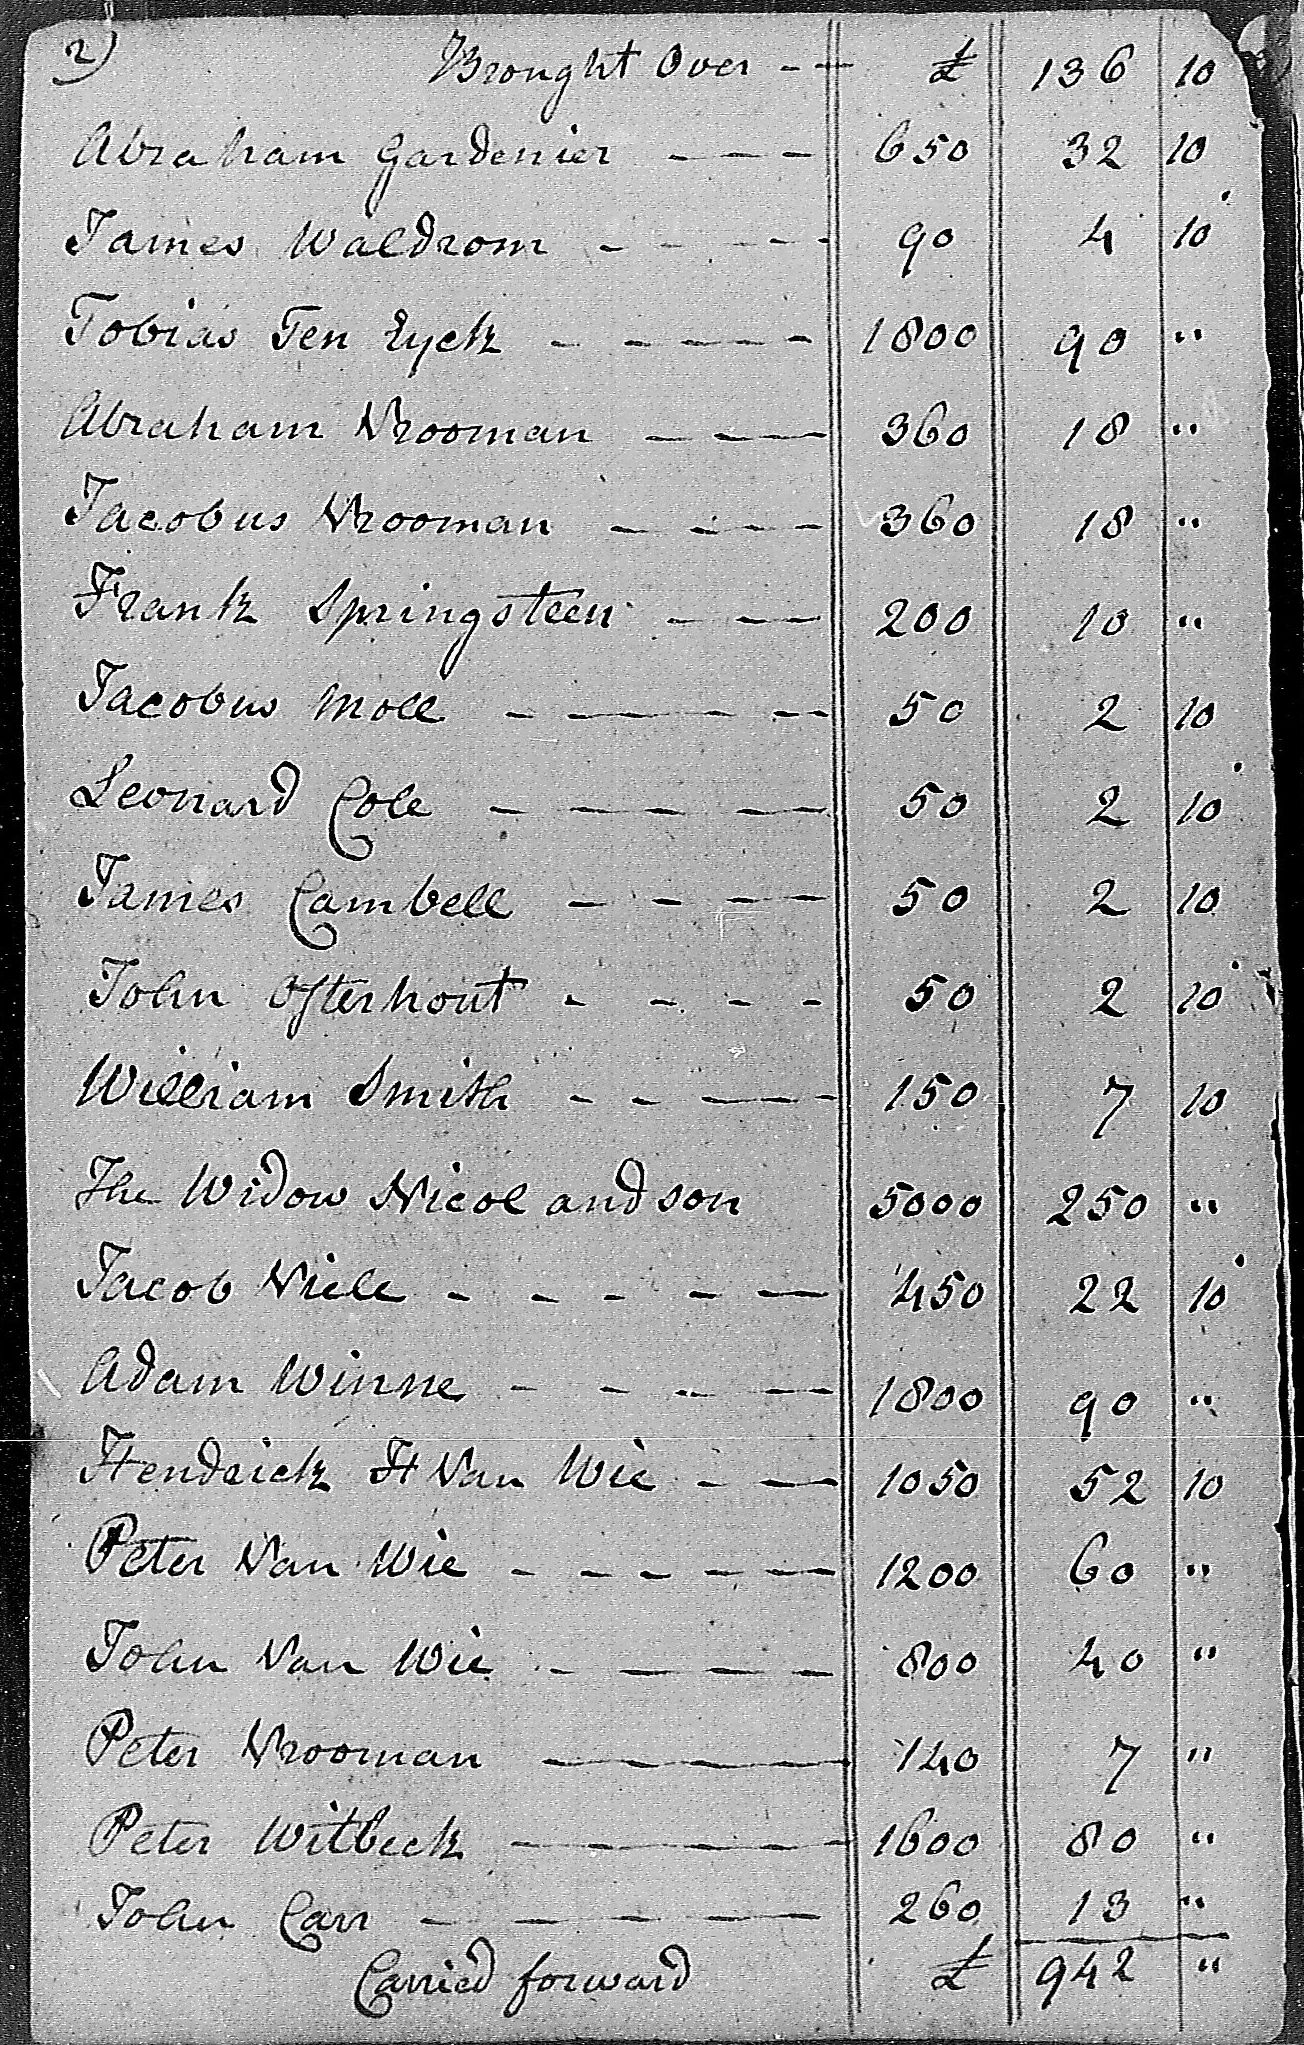 2)
Brought Over - - £ 136 10
Abraham Gardenier - - - 650 32 10
James Waldrom - - - - 90 4 10
Tobias Ten Eyck - - - - 1800 90 "
Abraham Vrooman - - - 360 18 "
Jacobus Vrooman - - - 360 18 "
Frank Springsteen - - - 200 10 "
Jacobus Moll - - - - 50 2 10
Leonard Cole - - - - 50 2 10
James Cambell - - - - 50 2 10
John Osterhout - - - - 50 2 10
William Smith - - - 150 7 10
The Widow Nicol and son 5000 250 "
Jacob Viele - - - - - 450 22 10
Adam Winne - - - - 1800 90 "
Hendrick H Van Wie - - 1050 52 10
Peter Van Wie - - - - - 1200 60 "
John Van Wie - - - - 800 40 "
Peter Vrooman - 140 7 "
Peter Witbeck - 1600 80 "
John Carr - - - - - 260 13 "
Carried forward £ 942 "